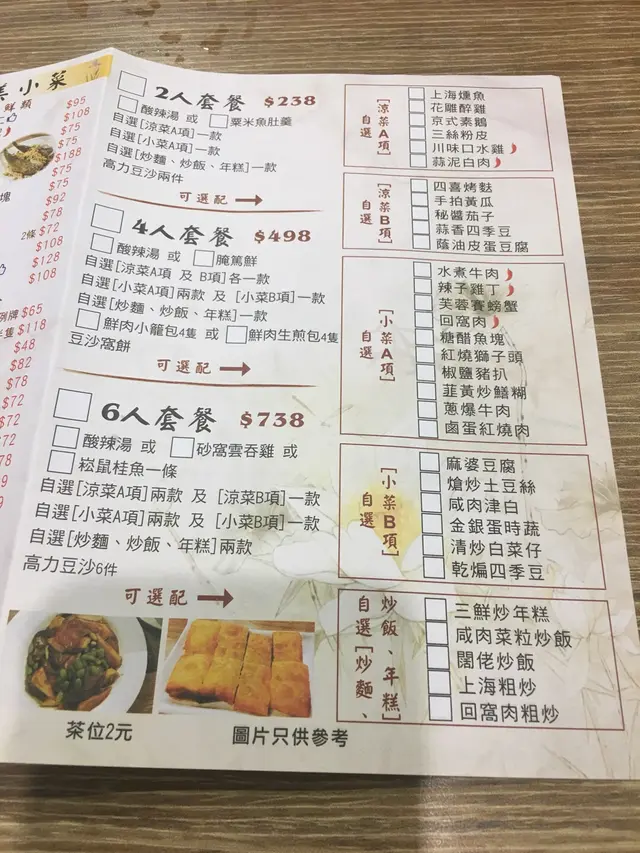 美小菜
鮮類
$95
$108
$75
$75
$188
$75
$75
塊 $92
$78
2條 $72
$108
$128
$108
例牌 $65
半隻 $118
$48
$82
$78
$72
$72
$72
$78
2人套餐 $238
酸辣湯 或 粟米魚肚羹
自選[涼菜A項]一款
自選[小菜A項]一款
自選[炒麵、炒飯、年糕]一款
高力豆沙兩件
可選配
4人套餐 $498
酸辣湯 或 腌篤鮮
自選[涼菜A項 及 B項]各一款
自選[小菜A項]兩款 及 [小菜B項]一款
自選[炒麵、炒飯、年糕]一款
鮮肉小籠包4隻 或 鮮肉生煎包4隻
豆沙窩餅
可選配
6人套餐 $738
酸辣湯 或 砂窩雲吞雞 或
崧鼠桂魚一條
自選[涼菜A項]兩款 及 [涼菜B項]一款
自選[小菜A項]兩款 及 [小菜B項]一款
自選[炒麵、炒飯、年糕]兩款
高力豆沙6件
可選配
茶位2元
圖片只供參考
自選[涼菜A項]
上海燻魚
花雕醉雞
京式素鵝
三絲粉皮
川味口水雞
蒜泥白肉
自選[涼菜B項]
四喜烤麩
手拍黃瓜
秘醬茄子
蒜香四季豆
蔭油皮蛋豆腐
自選[小菜A項]
水煮牛肉
辣子雞丁
芙蓉賽螃蟹
回窩肉
糖醋魚塊
紅燒獅子頭
椒鹽豬扒
韮黃炒鱔糊
蔥爆牛肉
鹵蛋紅燒肉
自選[小菜B項]
麻婆豆腐
熗炒土豆絲
咸肉津白
金銀蛋時蔬
清炒白菜仔
乾煸四季豆
自選[炒麵、炒飯、年糕]
三鮮炒年糕
咸肉菜粒炒飯
闊佬炒飯
上海粗炒
回窩肉粗炒